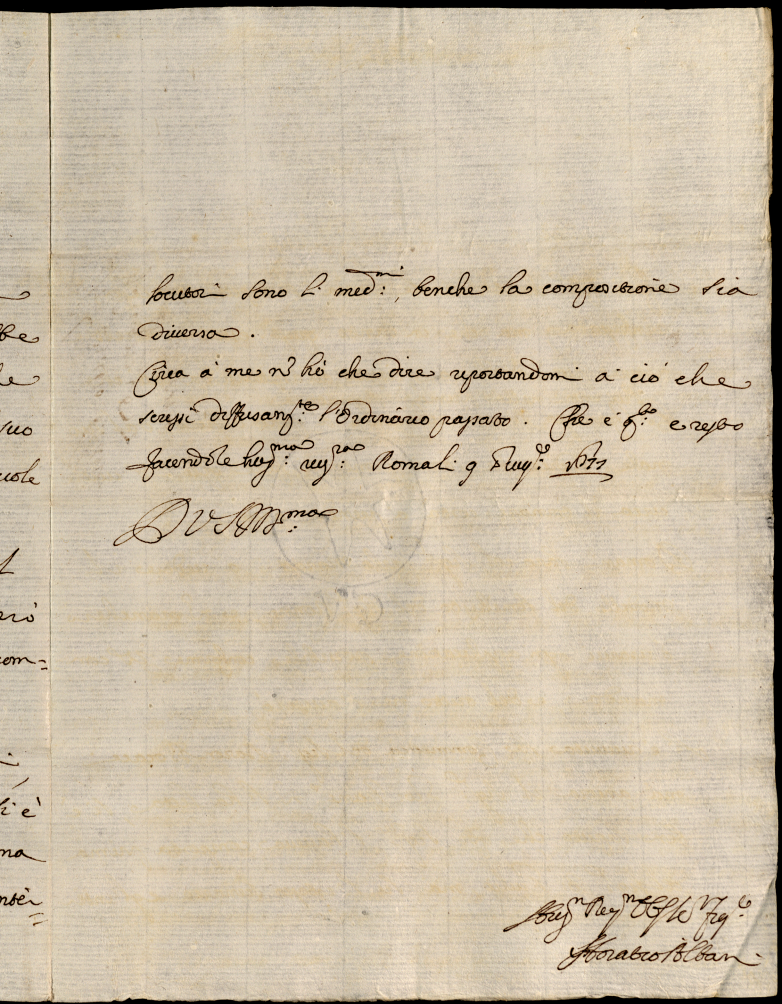 locutori sono li med:mi, benche la compositione sia
diversa.
Circa à me nõ hò che dire riportandomi à ciò che
scrissi diffusam:te l'Ordinario passato. Che è q:to e resto
facendole hum:ma riv:za Roma li 9 Lug:o 1677
D V S Ill:ma
Hum Re Obl
Horatio Alban
be
suo
rò
com=
è
na